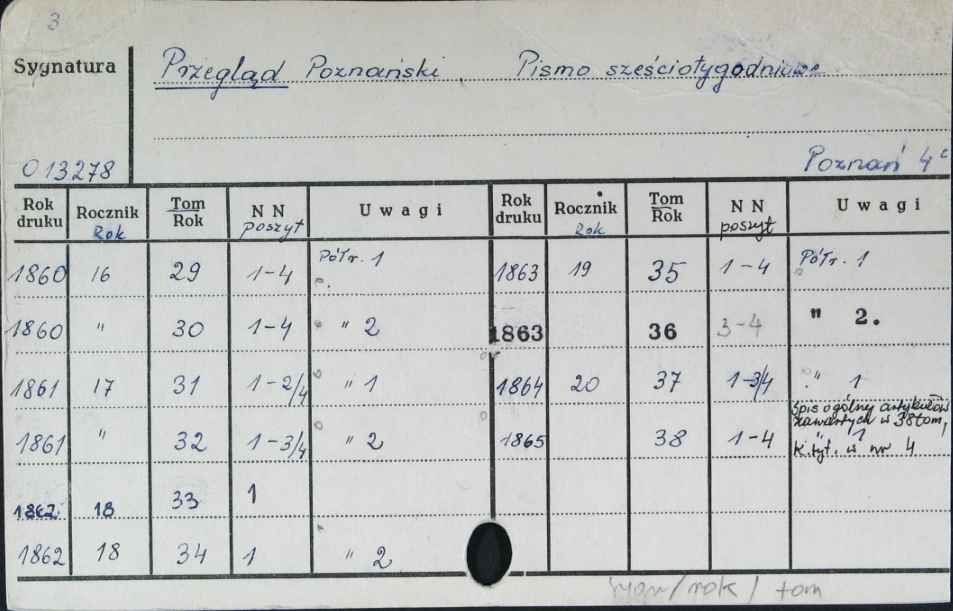 3
Sygnatura Przegląd Poznański, Pismo sześciotygodniowe
013278 Poznań 4°
Rok druku Rocznik Rok Tom Rok N N poszyt Uwagi Rok druku Rocznik Rok Tom Rok N N poszyt Uwagi
1860 16 29 1-4 Półr. 1 1863 19 35 1-4 Półr. 1
1860 " 30 1-4 " 2 1863 36 3-4 " 2.
1861 17 31 1-2/4 " 1 1864 20 37 1-3/4 " 1
1861 " 32 1-3/4 " 2 1865 38 1-4 " 1
Spis ogólnej artykułów
zawartych w 38 tom,
k. tyt. w nr 4
1862 18 33 1
1862 18 34 1 " 2
sygn/rok/tom